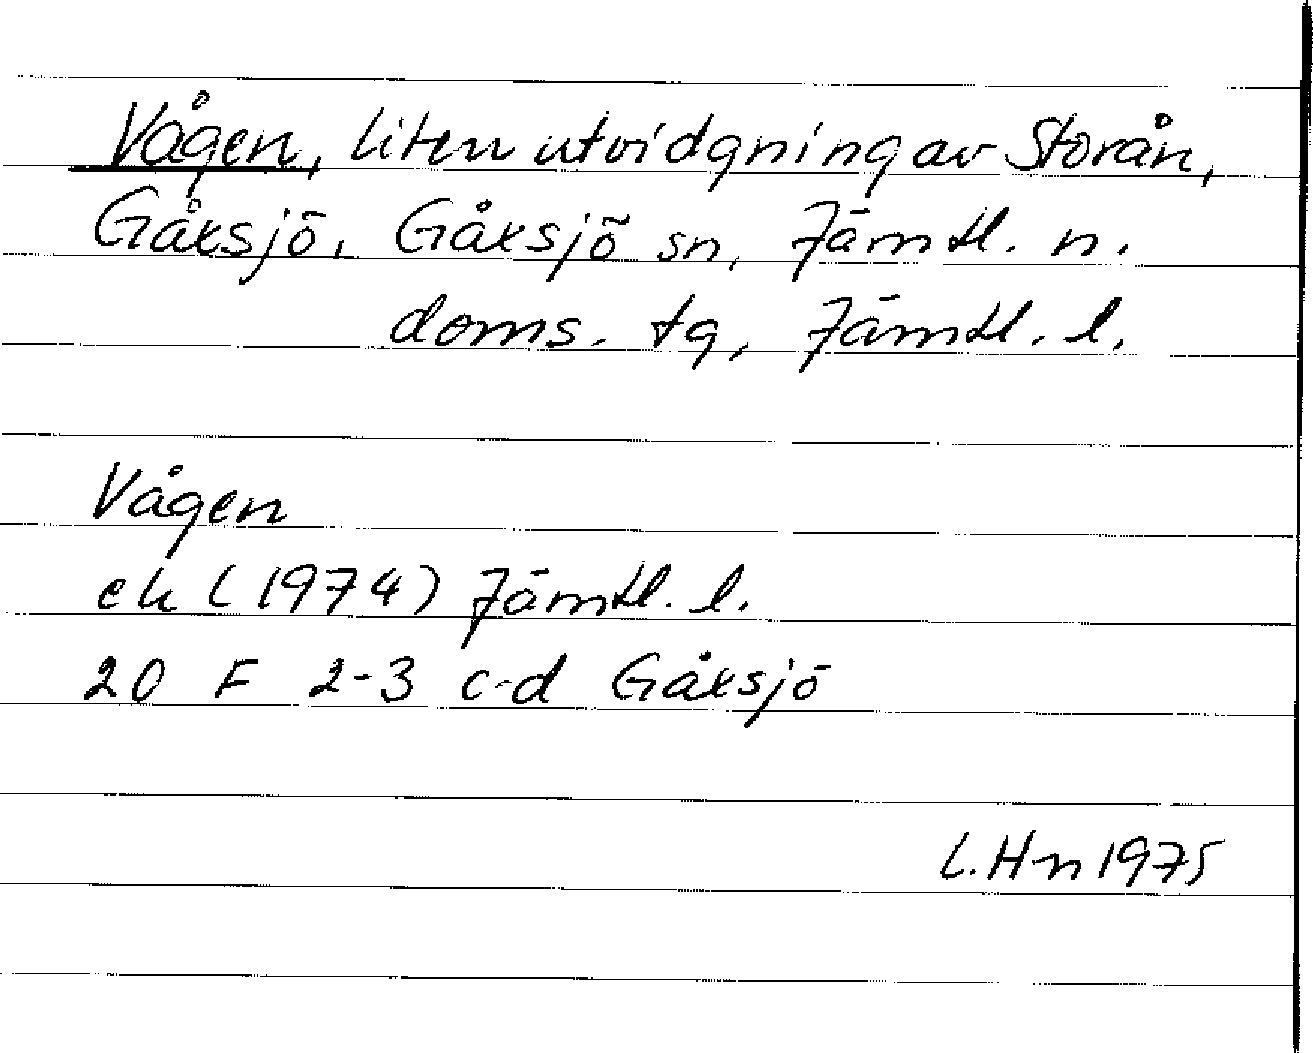 Vågen, liten utvidgning av Storån,
Gåxsjö, Gåxsjö sn, Jämtl. n.
doms. tg, Jämtl. l.
Vågen
ek (1974) Jämtl. l.
20 F 2-3 c-d Gåxsjö
L.Hn 1975